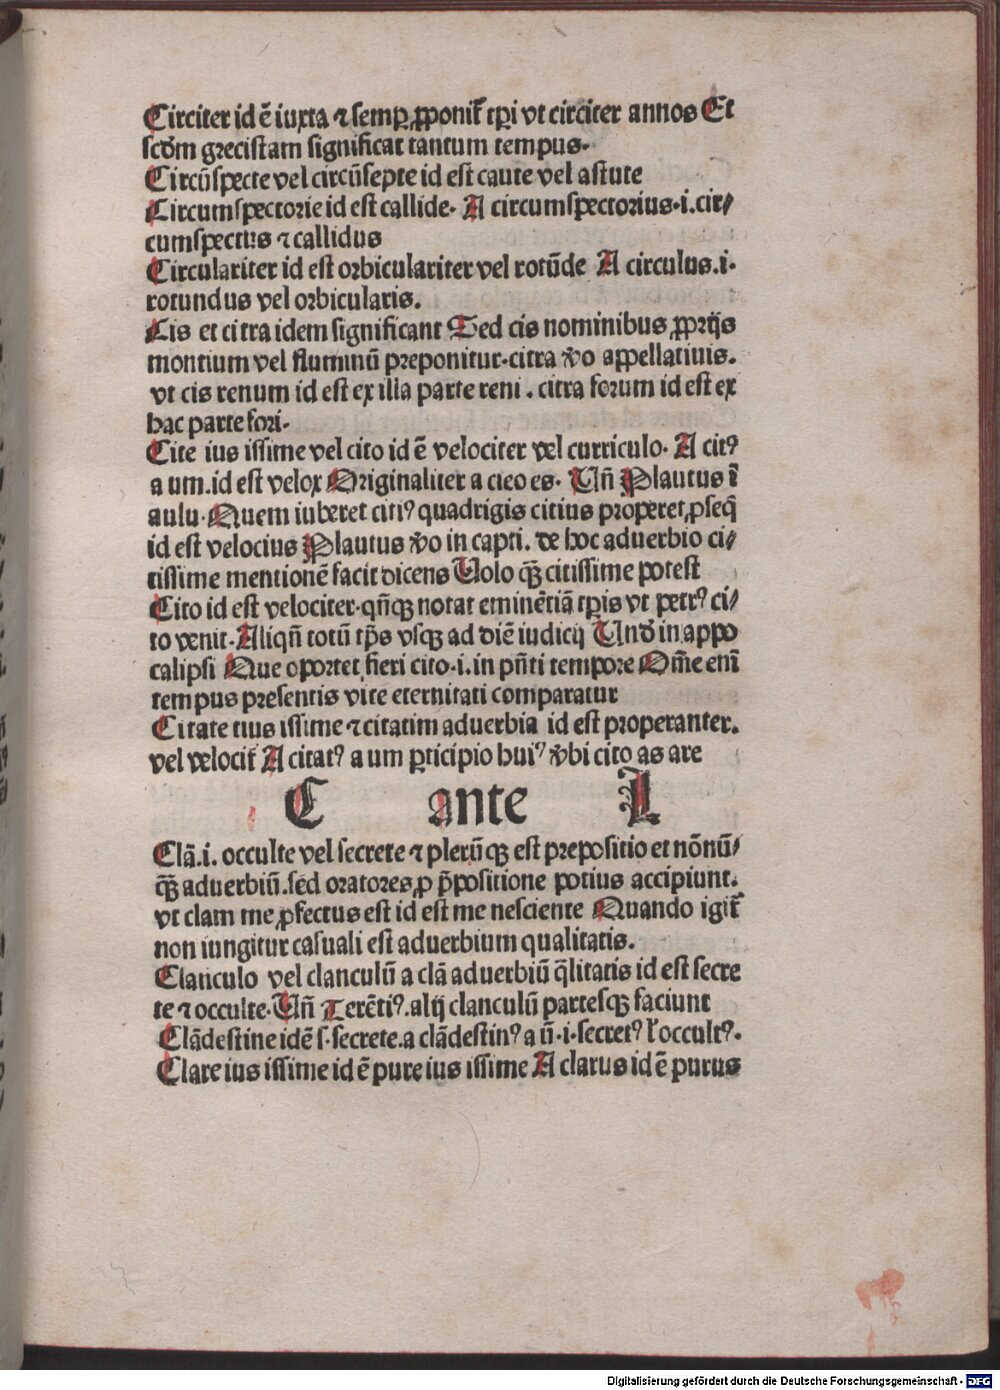 Circiter id ē iuxta ⁊ semꝑ ꝓponit᷑ tꝑi vt circiter annos Et
scdm grecistam significat tantum tempus.
Circūspecte vel circūsepte id est caute vel astute
Circumspectorie id est callide. A circumspectorius.i.cir/
cumspectus ⁊ callidus
Circulariter id est orbiculariter vel rotūde A circulus.i.
rotundus vel orbicularis.
Cis et citra idem significant Sed cis nominibus ꝓprijs
montium vel fluminū preponitur.citra v̄o appellatiuis.
vt cis renum id est ex illa parte reni. citra forum id est ex
hac parte fori.
Cite ius issime vel cito id ē velociter vel curriculo. A citꝰ
a um.id est velox Originaliter a cieo es. Vn̄ Plautus ī
aulu.Quem iuberet citiꝰ quadrigis citius properet,ꝓseq̄
id est velocius Plautus v̄o in capti. de hoc aduerbio ci/
tissime mentionē facit dicens Volo qꝫ̄ citissime potest
Cito id est velociter.qn̄qꝫ notat eminētiā tꝑis vt petrꝰ ci/
to venit.Aliqn̄ totū tp̄s vsqꝫ ad diē iudicij Vnd̄ in appo
calipsi Que oportet fieri cito.i.in pn̄ti tempore Om̄e enī
tempus presentis vite eternitati comparatur
Citate tius issime ⁊ citatim aduerbia id est properanter.
vel velocit᷑ A citatꝰ a um ꝑticipio huiꝰ v̄bi cito as are
C ante L
Clā.i. occulte vel secrete ⁊ plerūqꝫ est prepositio et nōnū/
qꝫ̄ aduerbiū.sed oratores ꝓ p̄positione potius accipiunt.
vt clam me ꝓfectus est id est me nesciente Quando igit᷑
non iungitur casuali est aduerbium qualitatis.
Clanculo vel clanculū a clā aduerbiū q̄litatis id est secre
te ⁊ occulte.Vn̄ Terētiꝰ.alij clanculū partesqꝫ faciunt
Clādestine idē s.secrete.a clādestinꝰ a ū.i.secretꝰ ł occultꝰ.
Clare ius issime id ē pure ius issime A clarus id ē purus
Digitalisierung gefördert durch die Deutsche Forschungsgemeinschaft - DFG